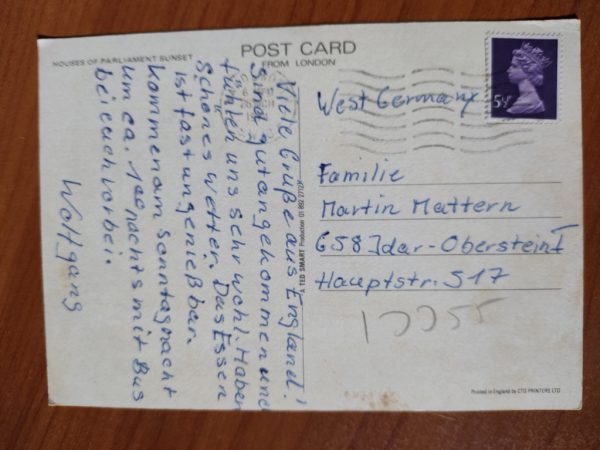 HOUSES OF PARLIAMENT SUNSET
POST CARD
FROM LONDON
5½P
Viele Grüße aus England!
Sind gut angekommen und
fühlen uns sehr wohl. Haben
schönes Wetter. Das Essen
ist fast ungenießbar.
Kommen am Sonntagnacht
um ca. 100 nachts mit Bus
bei euch vorbei.
Wolfgang
A TED SMART Production 01 892 2712
West Germany
Familie
Martin Mattern
658 Idar-Oberstein 1
Hauptstr. 517
Printed in England by CTD PRINTERS LTD